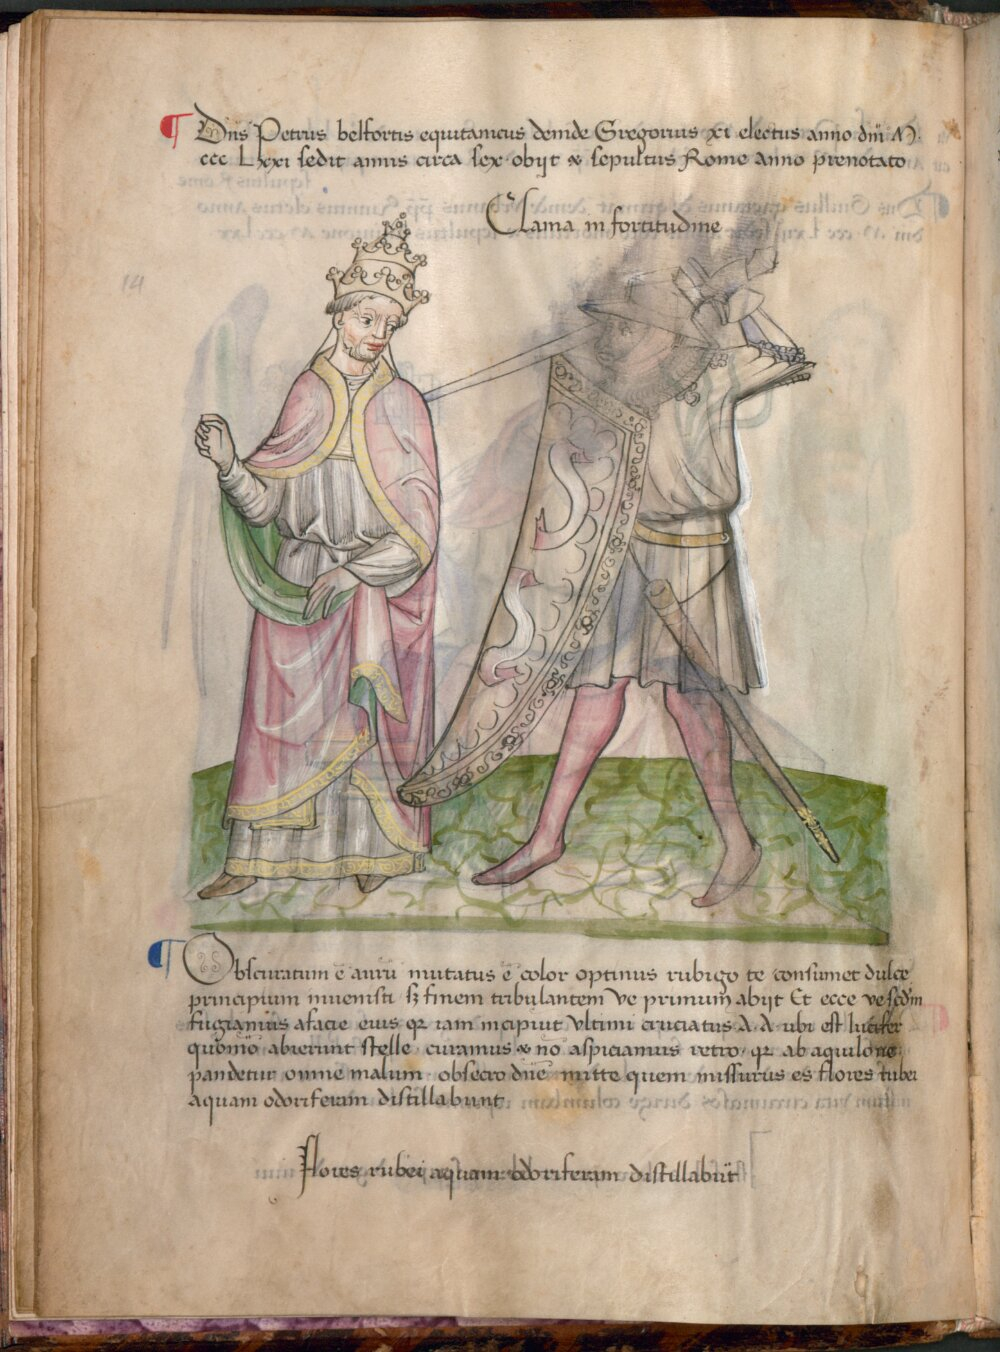 ¶ Dns Petrus belfortis equitanicus deinde Gregorius xi electus anno dni M
ccc Lxxi sedit annis circa sex obijt & sepultus Rome anno prenotato
Clama in fortitudine
14
¶ Obscuratum ē aurū mutatus ē color optimus rubigo te consumet dulce
principium invenisti sz finem tribulantem Ve primum abijt Et ecce ve scdm
fugiamus afacie eius qr iam incipiut ultimi cruciatus A. A. ubi est lucifer
quomō abierunt stelle curamus & nō aspiciamus retro qr ab aquilone
pandetur omne malum obsecro dnē mitte quem missurus es flores rubei
aquam odoriferam distillabunt
Flores rubei aquam odoriferam distillabūt